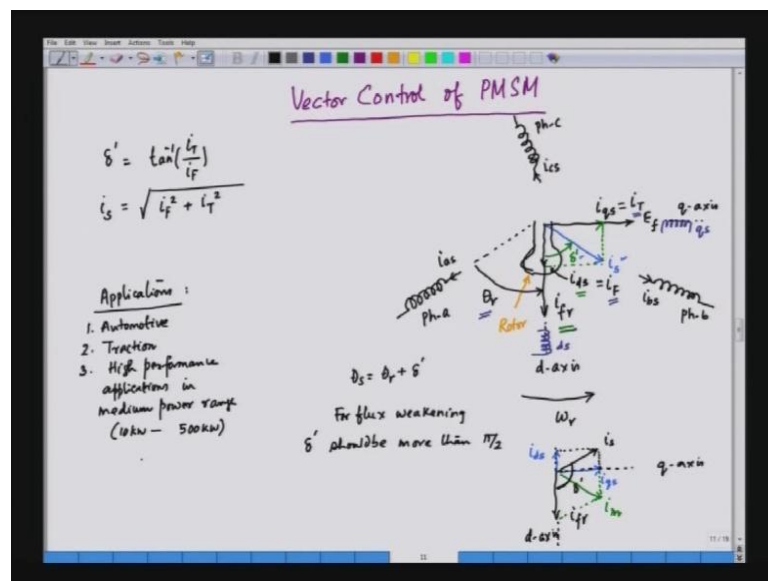 File Edit View Insert Actions Tools Help
Vector Control of PMSM
δ' = tan⁻¹(i_T/i_F)
i_s = √(i_F² + i_T²)
Applications :
1. Automotive
2. Traction
3. High performance
applications in
medium power range
(10kW – 500kW)
ph-c
i_cs
i_qs = i_T
E_f
q-axis
qs
i_as
δ'
i_s
i_ds = i_F
i_bs
ph-a
θ_r
Rotor
i_fr
ph-b
ds
d-axis
θ_s = θ_r + δ'
ω_r
For flux weakening
δ' should be more than π/2
i_ds
i_s
q-axis
i_qs
δ'
i_m
i_fr
d-axis
11 / 19
11